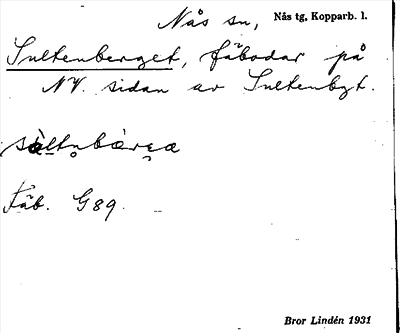 Nås sn, Nås tg, Kopparb. l.
Sultenberget, fäbodar på
NV. sidan av Sultenbgt.
Fäb. G89.
Bror Lindén 1931